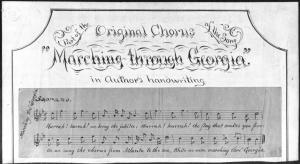 A Part of the Original Chorus of the Song
"Marching through Georgia."
in Author's handwriting
Soprano.
Hurrah! hurrah! we bring the jubilee, Hurrah! hurrah! the flag that makes you free;
So we sang the chorus from Atlanta to the sea, While we were marching thro' Georgia.